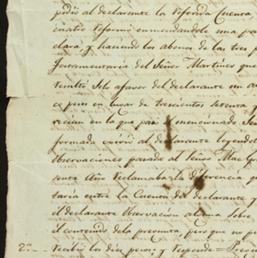 pidió al declarante la referida Cuenta,
cuatro reformó enmendandole una pa
clará, y haciendo los abonos de las tres p
Juramentaria del Señor Martines que
remitió Solo afavor del declarante un
ca pero en lugar de Trescientos Setenta y
recian en lo que para el mencionado Se
formada exivió al declarante leyendo
observaciones pasada al Señor Mac Gre
sente Año reclamaba la diferencia q
taria entre la Cuenta del declarante y
el declarante observacion alguna Sobre
el contenido dela pregunta, pero que no p
2ª recibió los diez pesos y responde =